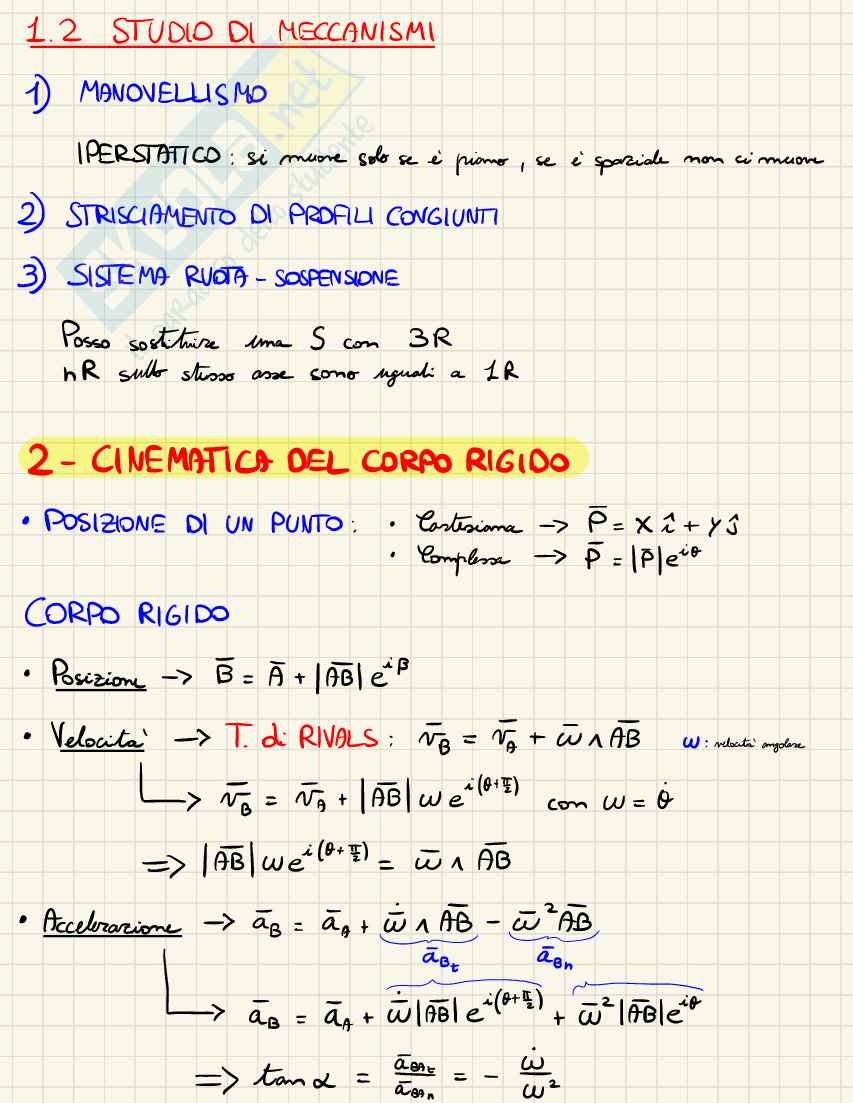 1.2 STUDIO DI MECCANISMI
1) MANOVELLISMO
IPERSTATICO: si muove solo se è piano, se è spaziale non ci muove
2) STRISCIAMENTO DI PROFILI CONGIUNTI
3) SISTEMA RUOTA - SOSPENSIONE
Posso sostituire una S con 3R
nR sullo stesso asse sono uguali a 1R
2 - CINEMATICA DEL CORPO RIGIDO
• POSIZIONE DI UN PUNTO: • Cartesiana → P̄ = x î + y ĵ
• Complessa → P̄ = |P̄| e^{iθ}
CORPO RIGIDO
• Posizione → B̄ = Ā + |A̅B̅| e^{iβ}
• Velocità → T. di RIVALS: v̄_B = v̄_A + ω̄ ∧ A̅B̅ ω: velocità angolare
→ v̄_B = v̄_A + |A̅B̅| ω e^{i(θ+π/2)} con ω = θ̇
=> |A̅B̅| ω e^{i(θ+π/2)} = ω̄ ∧ A̅B̅
• Accelerazione → ā_B = ā_A + ω̄̇ ∧ A̅B̅ - ω̄² A̅B̅
ā_{Bt} ā_{Bn}
→ ā_B = ā_A + ω̄̇ |A̅B̅| e^{i(θ+π/2)} + ω̄² |A̅B̅| e^{iθ}
=> tan α = ā_{BAt} / ā_{BAn} = - ω̇ / ω²
SKUOLA.net
il paradiso dello studente